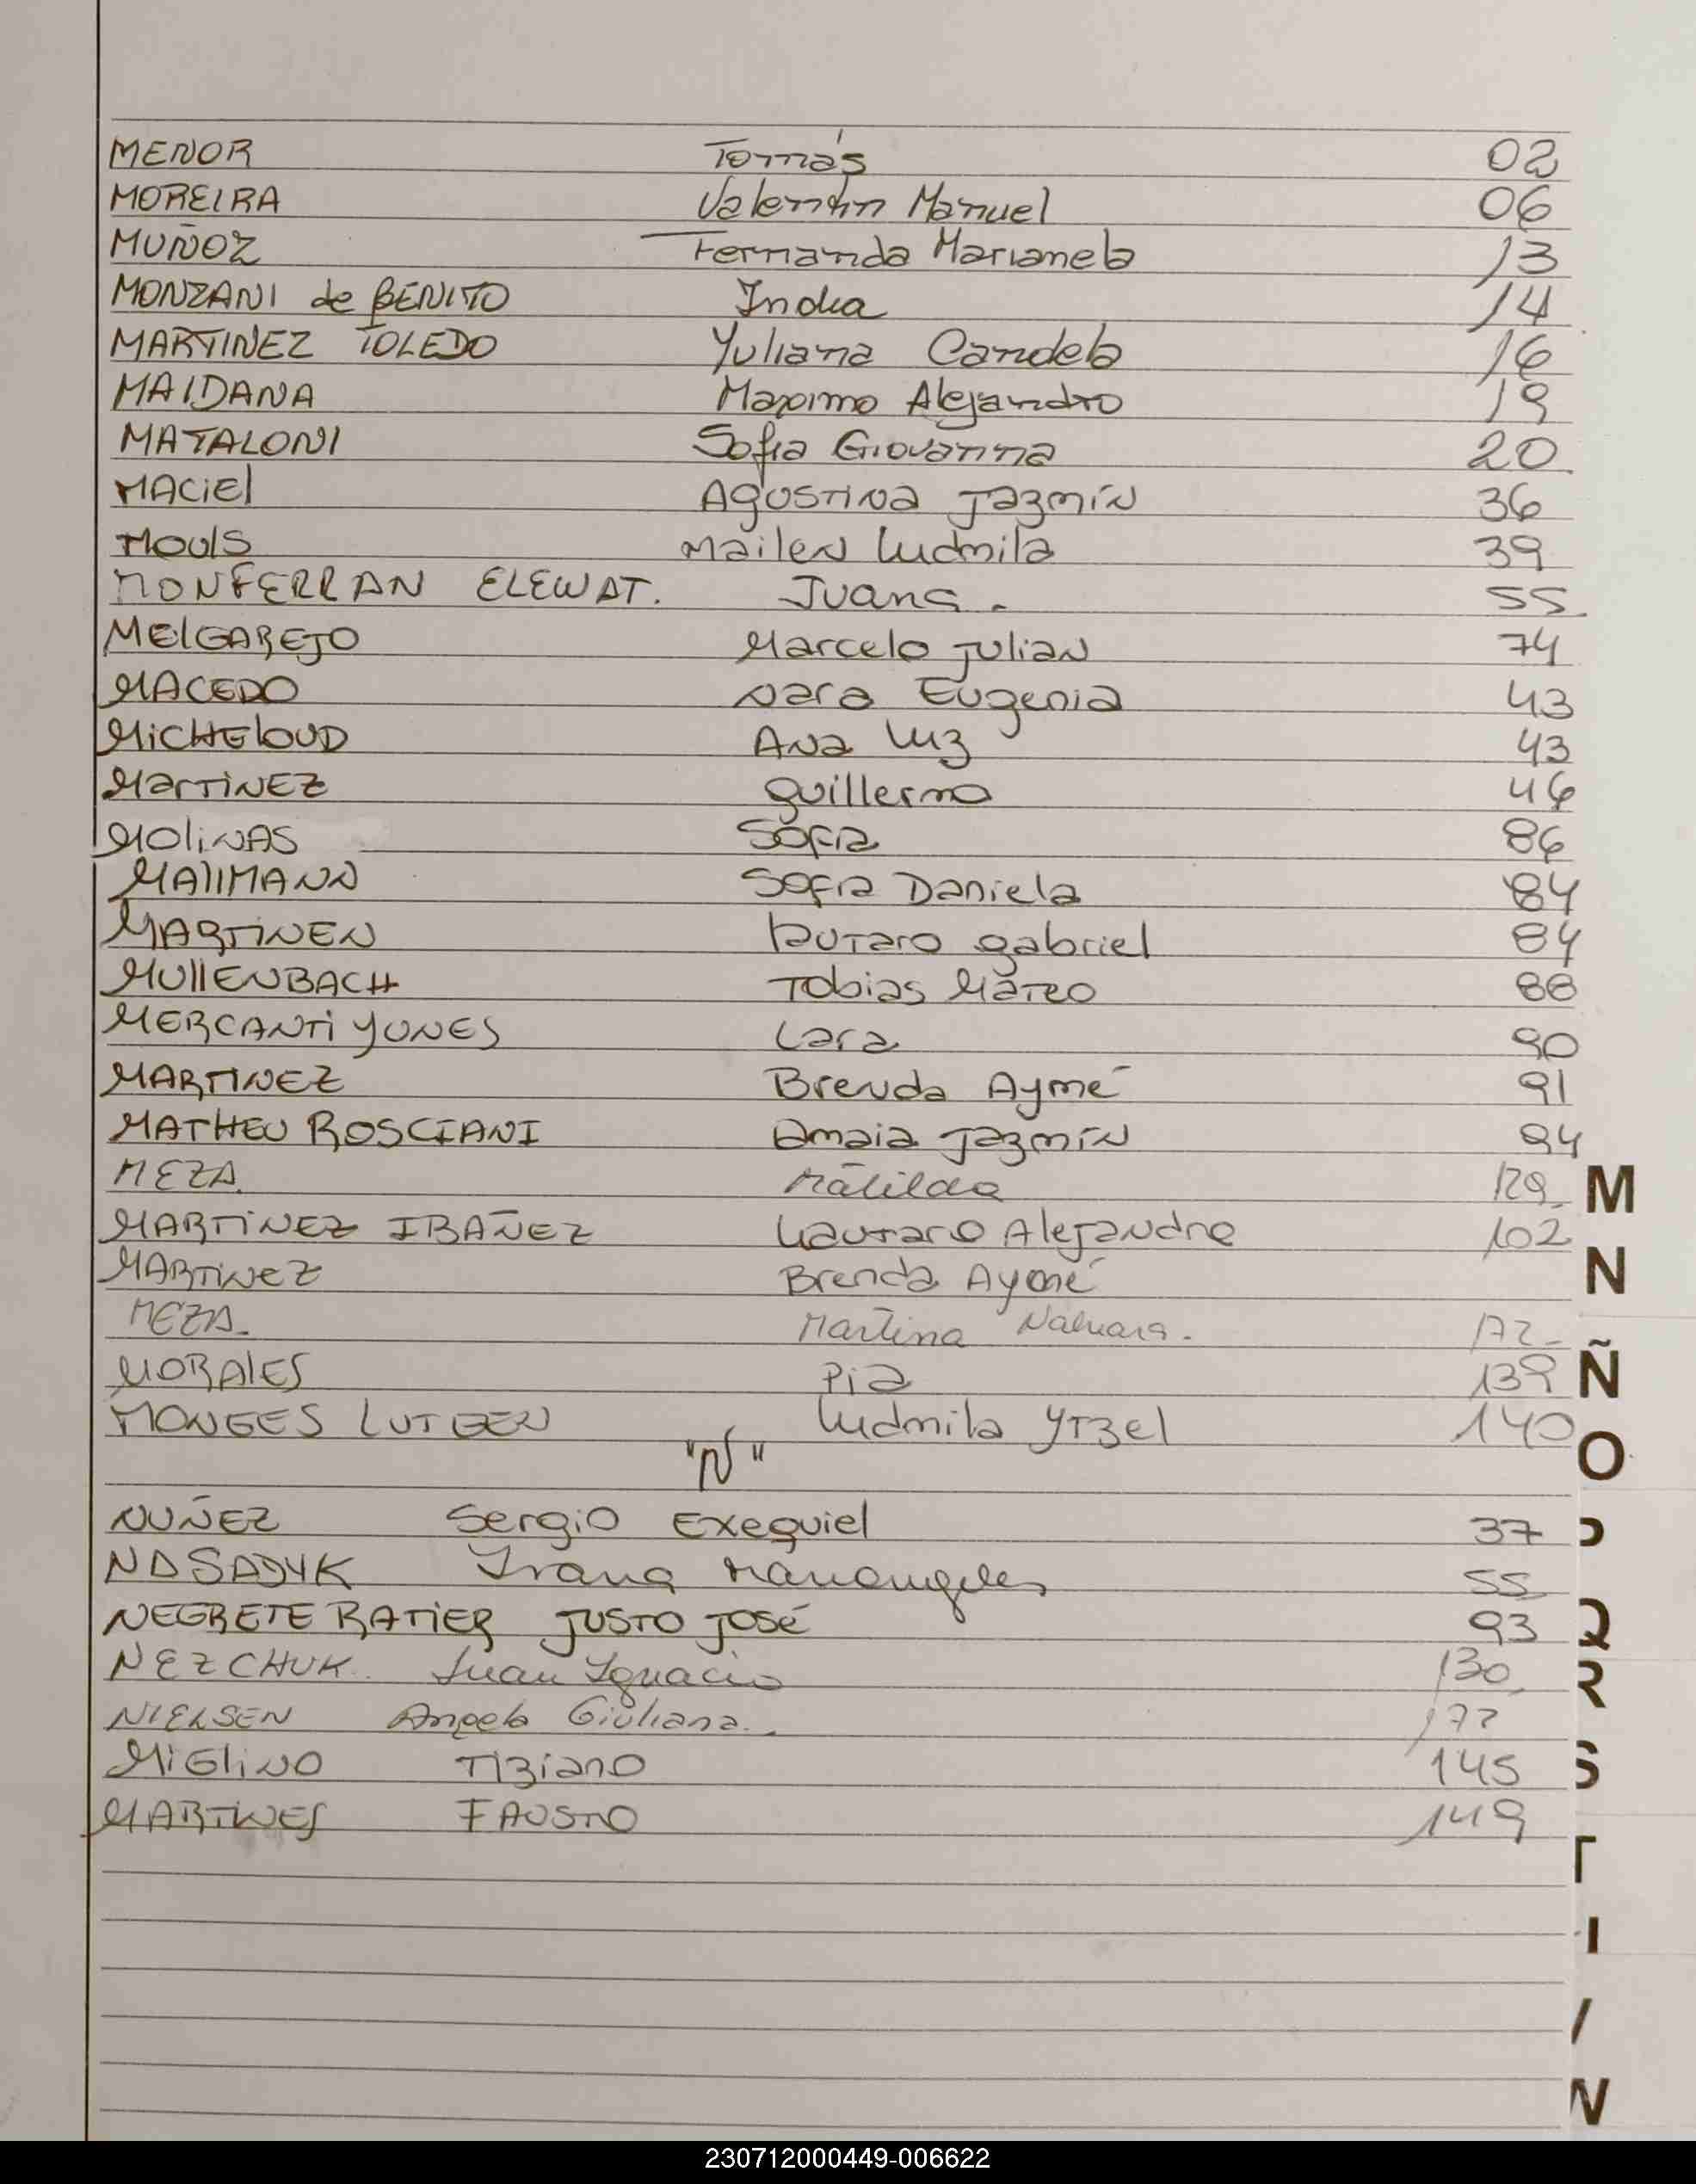 MENOR Tomás 02
MOREIRA Valentín Manuel 06
MUÑOZ Fernanda Marianela 13
MONZANI de BENITO India 14
MARTINEZ TOLEDO Yuliana Candela 16
MAIDANA Maximo Alejandro 19
MATALONI Sofia Giovanna 20
MACiEl AgUSTINA Jazmín 36
MoulS Mailen Ludmila 39
MONFERRAN ELEWAT. Juana. 55
MElGAREJO Marcelo Julian 74
MACEDO Nara Eugenia 43
MiCHElOUD Ana Luz 43
MarTiNEZ guillermo 46
MOliNAS Sofia 86
MAllMANN Sofia Daniela 84
MARTINEN lautaro gabriel 84
MUllENBACH Tobias Mateo 88
MERCANTi YUNES Lara 90
MARTINEZ Brenda Aymé 91
MATHEU ROSCIANI Amaia Jazmín 94
MEZA. Matilda 129 M
MARTiNEZ IBAÑEZ Lautaro Alejandro 102
MARTiNEZ Brenda Aymé N
MEZA. Martina
MORAlES Pia 139 Ñ
MONGES LUTGEN Ludmila YTzel 140
"N" O
NUÑEZ Sergio Exequiel 37 P
NASADYK Ivana Mariangeles 55
NEGRETE RATiER JUSTO JOSé 93 Q
NEZCHUK. Juan Ignacio 130 R
NIELSEN Angela Giuliana.
MiGliNO Tiziano 145 S
MARTINES FAUSTO 149
T
I
/
N
230712000449-006622